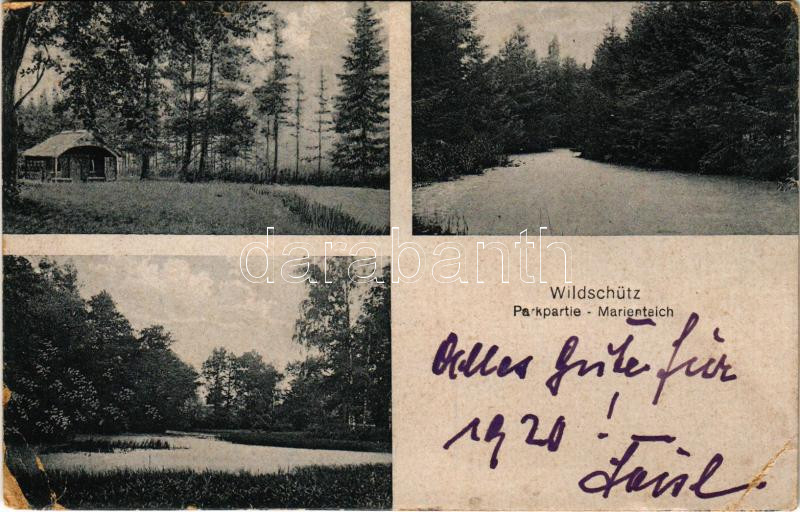 darabanth
Wildschütz
Parkpartie - Marienteich
Alles Gute für
1920!